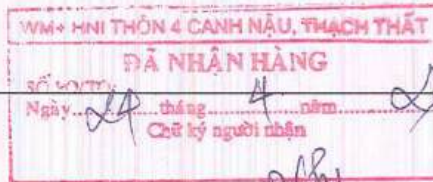 WM+ HNI THÔN 4 CANH NẬU, THẠCH THẤT
ĐÃ NHẬN HÀNG
Ngày 24 tháng 4 năm 2
Chữ ký người nhận